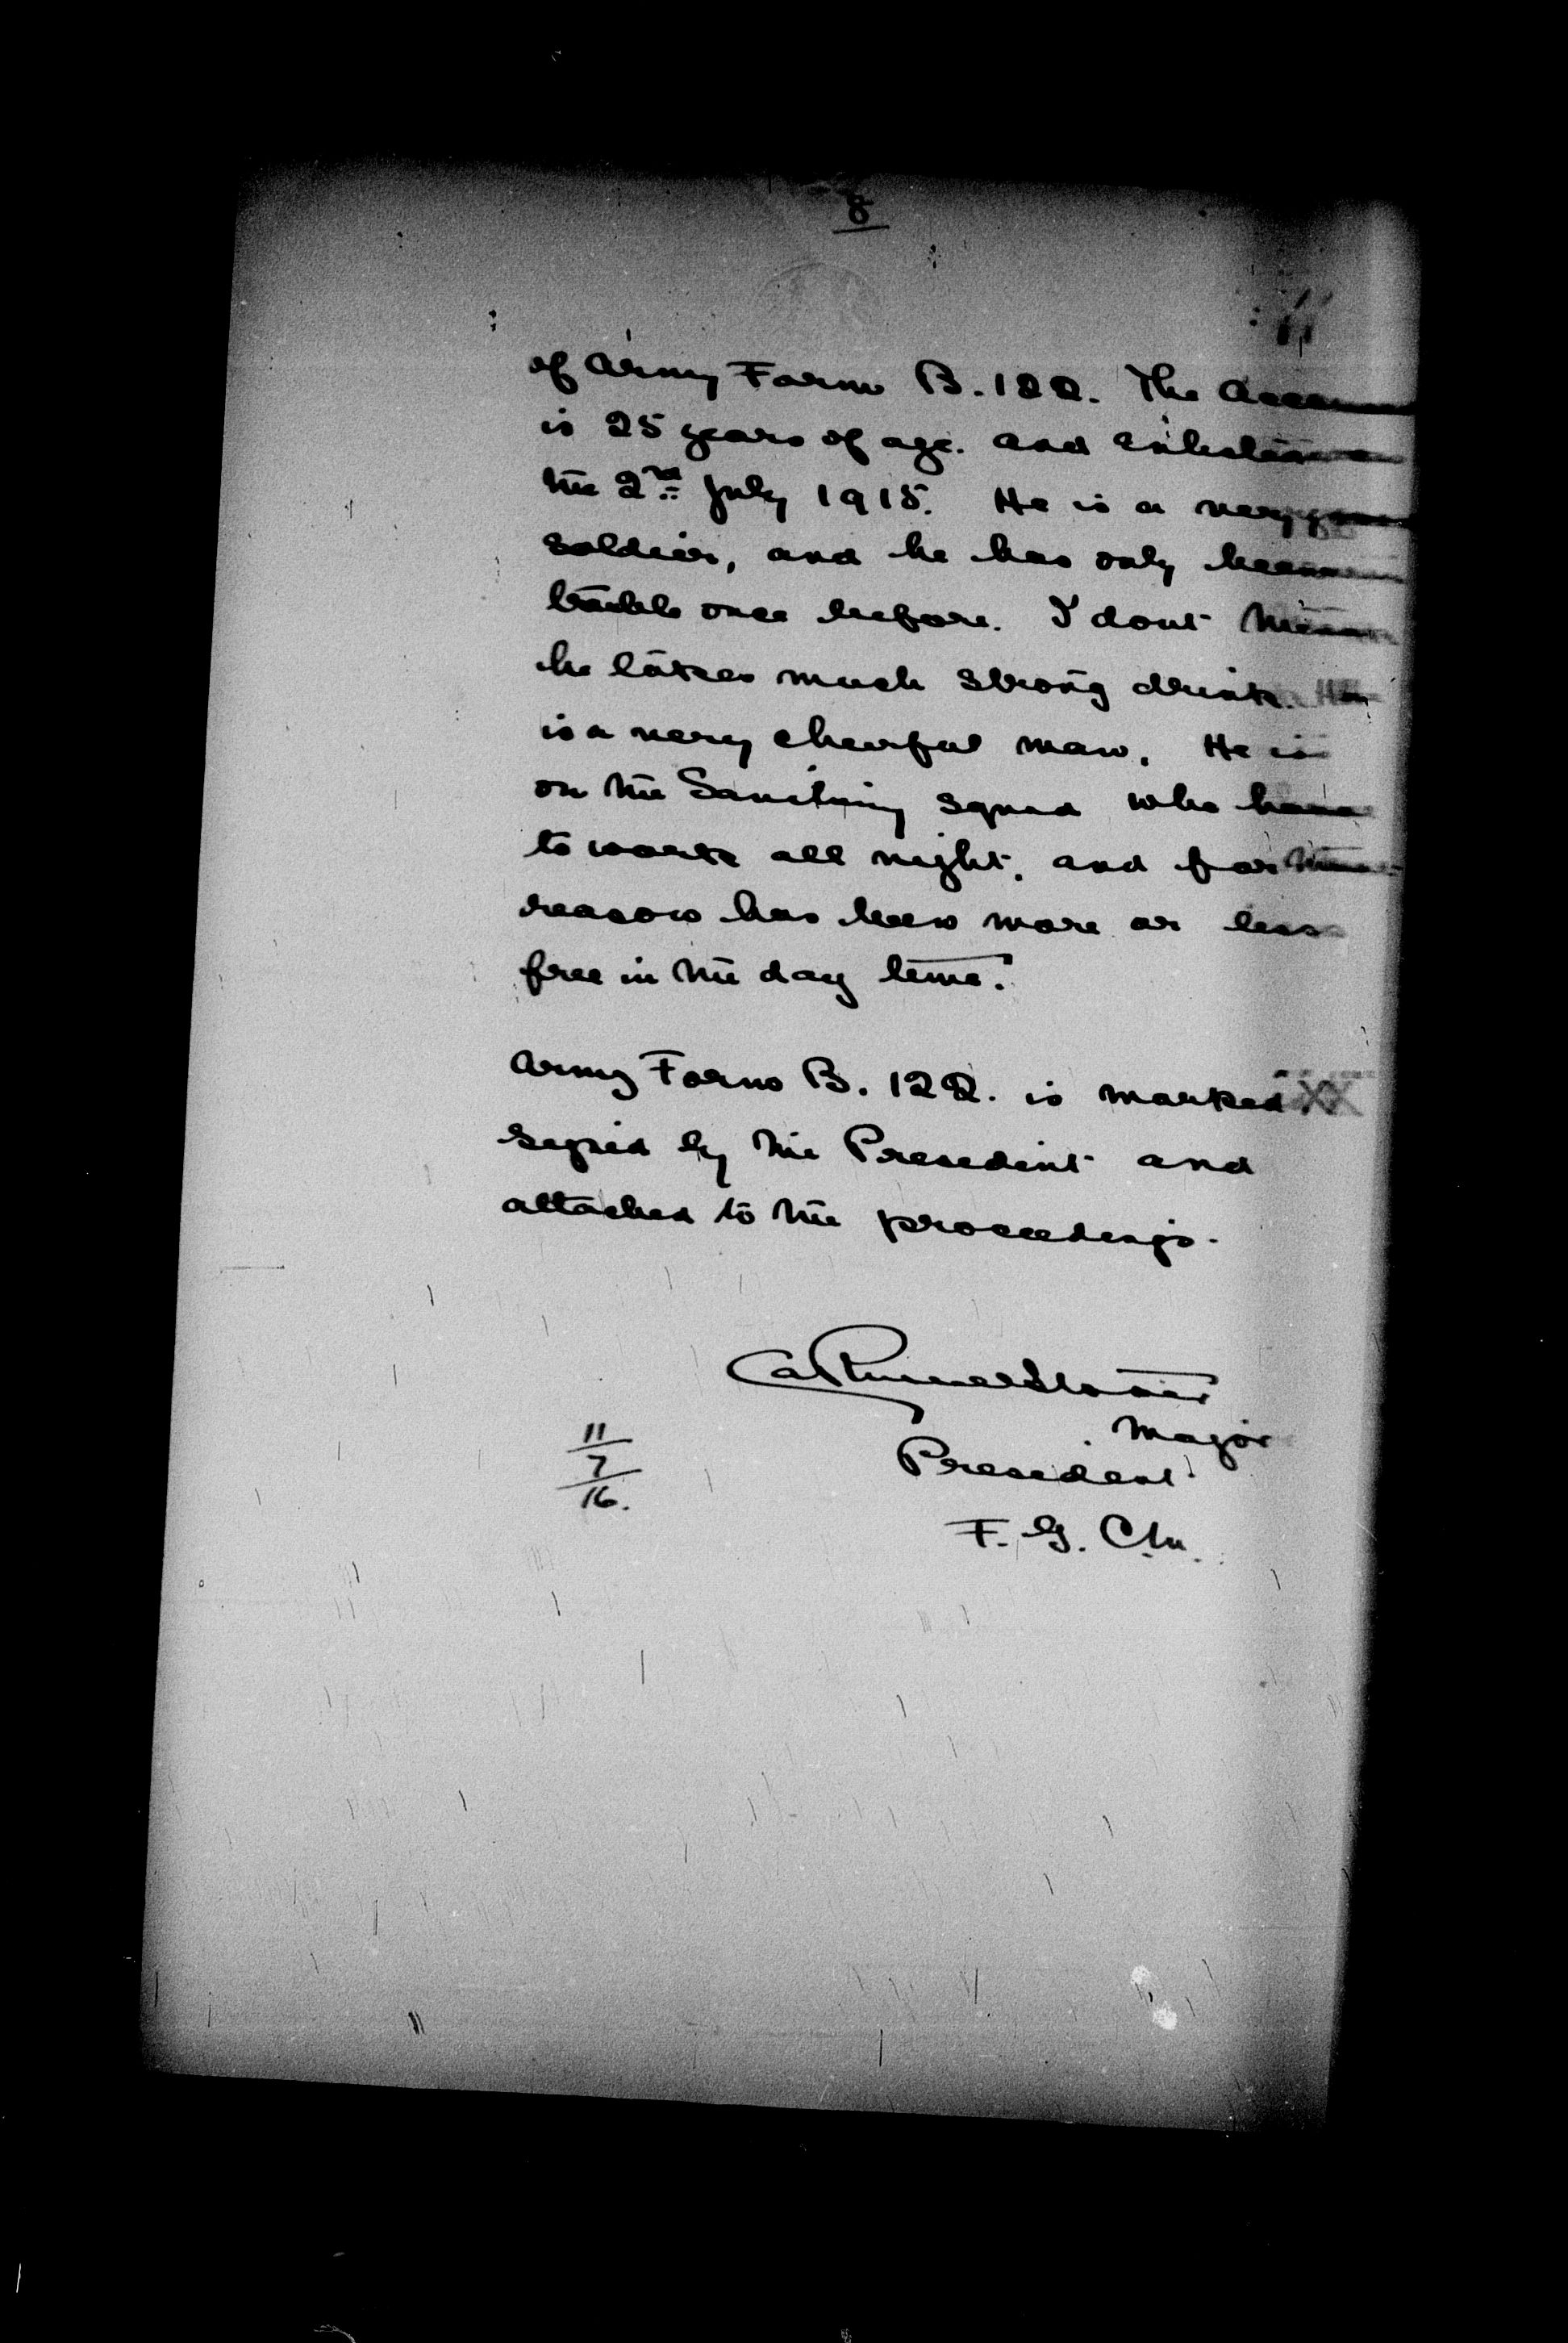 8
of Army Form B.122. The Accused
is 25 years of age. and enlisted on
the 2nd July 1915. He is a very good
soldier, and he has only been in
trouble once before. I dont think
he takes much strong drink. He
is a very cheerful man. He is
on the Sanitary squad who have
to work all night, and for that
reason has been more or less
free in the day time.
Army Form B. 122. is marked X
signed by the President and
attached to the proceedings.
Major
11
7
16.
President
F. G. C.M.